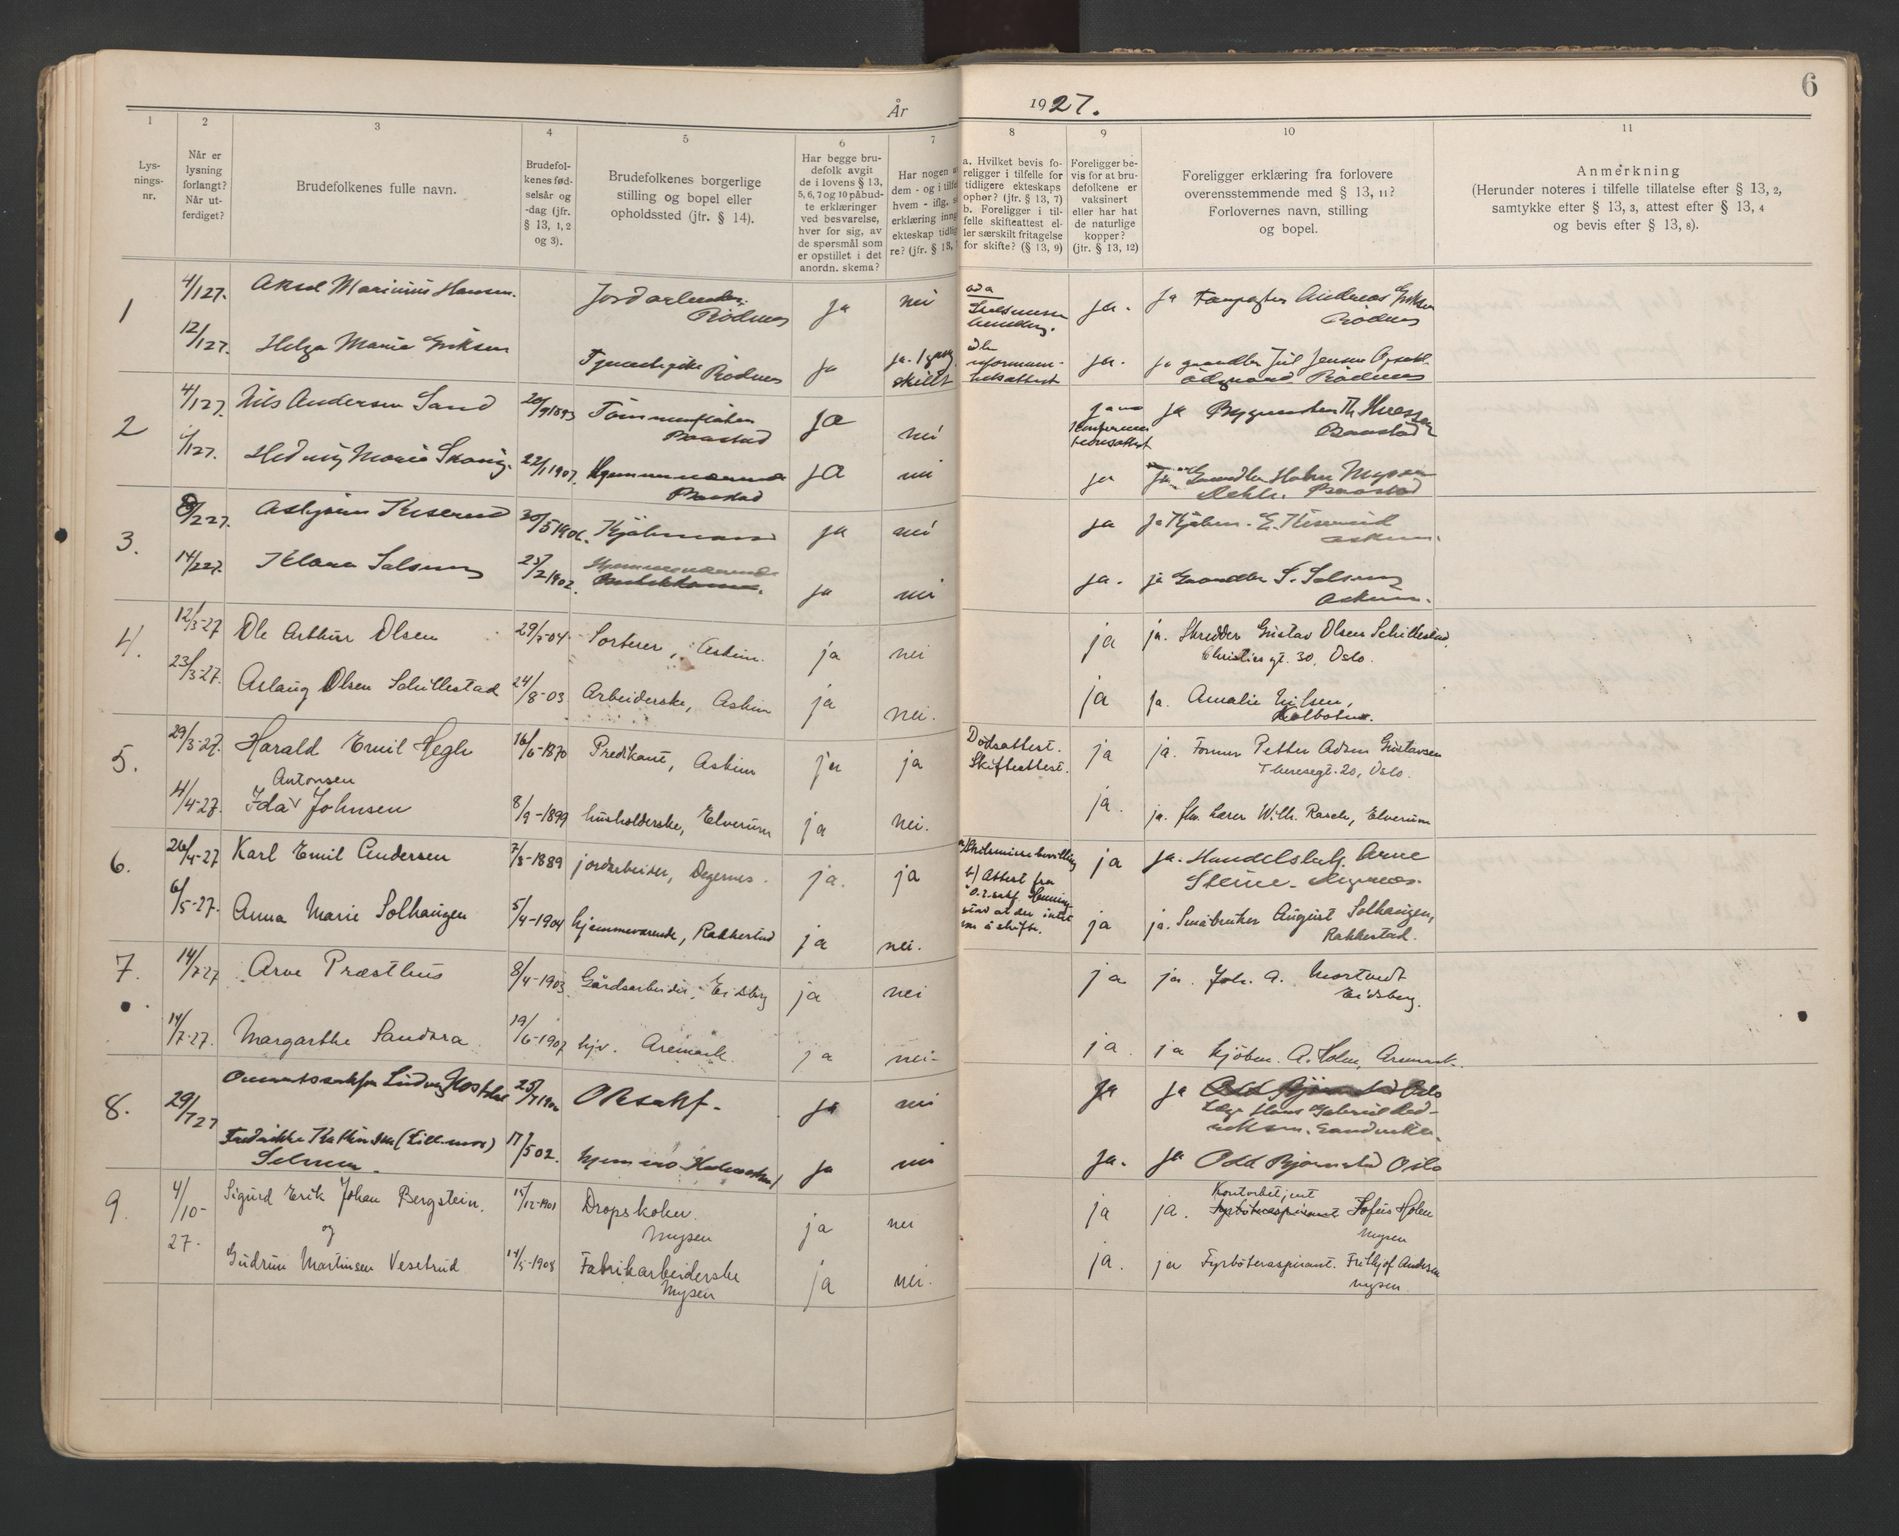 År 1927.
6
1 2 3 4 5 6 7 8 9 10 11
Lys-
nings-
nr.
Når er
lysning
forlangt?
Når ut-
ferdiget?
Brudefolkenes fulle navn.
Brudefol-
kenes fød-
selsår og
-dag (jfr.
§ 13, 1, 2
og 3).
Brudefolkenes borgerlige
stilling og bopel eller
opholdssted (jfr. § 14).
Har begge bru-
defolk avgit
de i lovens § 13,
5, 6, 7 og 10 påbud-
te erklæringer
ved besvarelse,
hver for sig, av
de spørsmål som
er opstillet i det
anordn. skema?
Har nogen av
dem - og i tilfel
hvem - iflg. s
erklæring inng
ekteskap tidlig
re? (jfr. § 13,
a. Hvilket bevis fo-
religger i tilfelle for
tidligere ekteskaps
ophør? (jfr. § 13, 7)
b. Foreligger i til-
felle skifteattest el-
ler særskilt fritagelse
for skifte? (§ 13, 9)
Foreligger be-
vis for at bru-
defolkene er
vaksinert
eller har hat
de naturlige
kopper?
(jfr. § 13, 12)
Foreligger erklæring fra forlovere
overensstemmende med § 13, 11?
Forlovernes navn, stilling
og bopel.
Anmerkning
(Herunder noteres i tilfelle tillatelse efter § 13, 2,
samtykke efter § 13, 3, attest efter § 13, 4
og bevis efter § 13, 8).
1 4/1 27. Aksel Marinius Hansen. Rødnes ja nei ja. ja Andreas Eriksen
Rødnes
12/1 27. Helga Marie Eriksen Rødnes ja ja. 1 gang skillt ja. ja gaardbr Jul Jensen
Rødnes
2 4/1 27. Nils Andersen Sand 20/9 1893 Tømmerfløter
Baastad ja nei ja Baastad
/1 27. Hedvig Marie 22/1 1907. Hjemmeværende
Baastad ja nei ja Gaardbr
Baastad
3. /2 27. Asbjørn Kiserud 30/5 1906. Kjøbmand ja nei ja ja Kjøbm. E. Kiserud
Askim.
14/2 27. Klara Solsum 25/2 1902. Hjemmeværende ja nei ja. ja Gaardbr S. Solsum
Askim.
4. 12/3-27 Ole Arthur Olsen 29/ -04. Sorterer, Askim. ja nei ja ja. Skredder Gustav Olsen Schillestad,
Christies gt. 30, Oslo.
23/3-27. Aslaug Olsen Schillestad 24/8-03 Arbeiderske, Askim ja nei. ja ja. Amalie Nilsen,
Kolbotn.
5. 29/3-27. Harald Emil Hegli 16/6-1870 Predikant, Askim ja ja Dødsattest.
Skifteattest. ja ja. Former Petter Adam Gustavsen
Theresegt. 20, Oslo.
Antonsen
4/4-27. Ida Johnsen 8/9-1899 husholderske, Elverum ja nei. ja. ja. fhv. lærer Wilh. Rasch, Elverum
6. 26/4-27 Karl Emil Andersen 7/3-1889 jordarbeider, Degernes. ja. ja Skilsmissebevilling
b) Attest fra
o.r.sakf.
ja ja. Handelsbet. Arne
Steine - Degernes.
6/5-27. Anna Marie Solhaugen 5/4-1904 hjemmeværende, Rakkestad ja nei. ja ja. Småbruker August Solhaugen,
Rakkestad.
7. 14/7 27 Arve Præsthus 8/4-1903 Gårdsarbeider, Eidsberg ja nei ja ja. Joh. A. Mortvedt
Eidsberg.
14/7-27. Margarthe Sandara. 19/6-1907 hjv. Aremark. ja nei- ja. ja kjøbm. A. Holm, Aremark.
8. 29/7 27 Ludvig 25/ OR sakf. ja nei ja ja Odd Bjørnstad Oslo
Læge Hans Gabriel
Sandvika.
Fredrikke Kathinka (Lillemor)
Selmer. 17/5 02. ja nei ja. ja Odd Bjørnstad Oslo
9. 4/10-27. Sigurd Erik Johan Bergstein.
og
15/12-1901 Dropskoker.
Mysen ja nei ja ja. Kontorbetjent
Fyrbøteraspirant Sofus Holm
Mysen
Gudrun Martinsen Vesetrud 14/5-1908 Fabrikarbeiderske
Mysen ja nei. ja. ja Fyrbøteraspirant. Frithjof Andersen
Mysen.